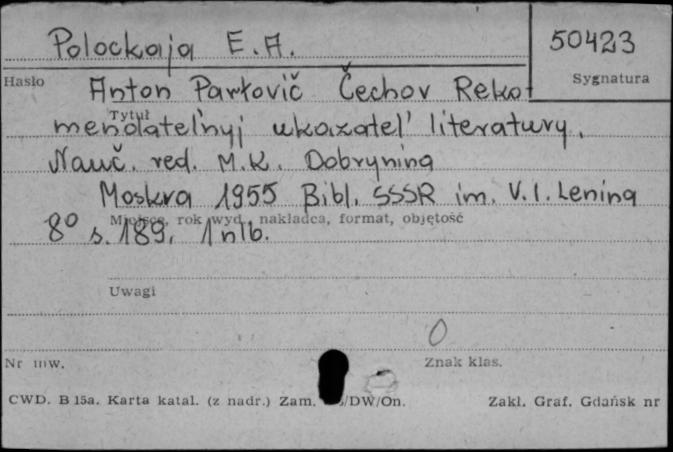 Polockaja E.A.
50423
Hasło
Sygnatura
Anton Pavłovič Čechov Reko-
Tytuł
mendatel'nyj ukazatel' literatury.
Nauč. red. M.K. Dobrynina
Moskva 1955 Bibl. SSSR im. V.I. Lenina
Miejsce, rok wyd., nakładca, format, objętość
8° s. 189, 1 nlb.
Uwagi
0
Nr inw.
Znak klas.
CWD. B 15a. Karta katal. (z nadr.) Zam. /DW/On.
Zakł. Graf. Gdańsk nr